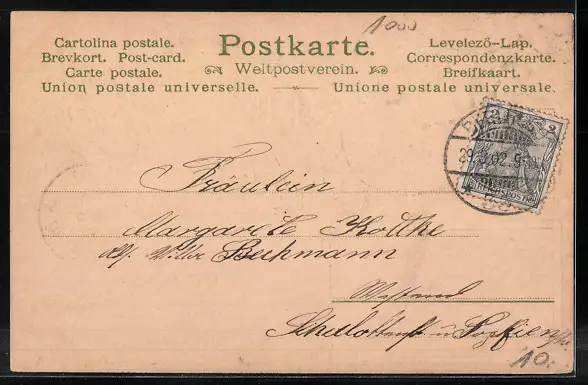 1000
Cartolina postale.
Brevkort. Post-card.
Carte postale.
Union postale universelle.
Postkarte.
Weltpostverein.
Levelezö-Lap.
Correspondenzkarte.
Breifkaart.
Unione postale universale.
2
29 02 9
REICHSPOST
Fräulein
Margarete Kottke
Beckmann
10.